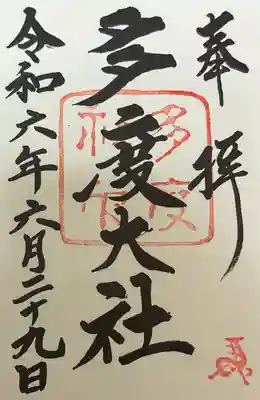 奉拝
多度大社
令和六年六月二十九日